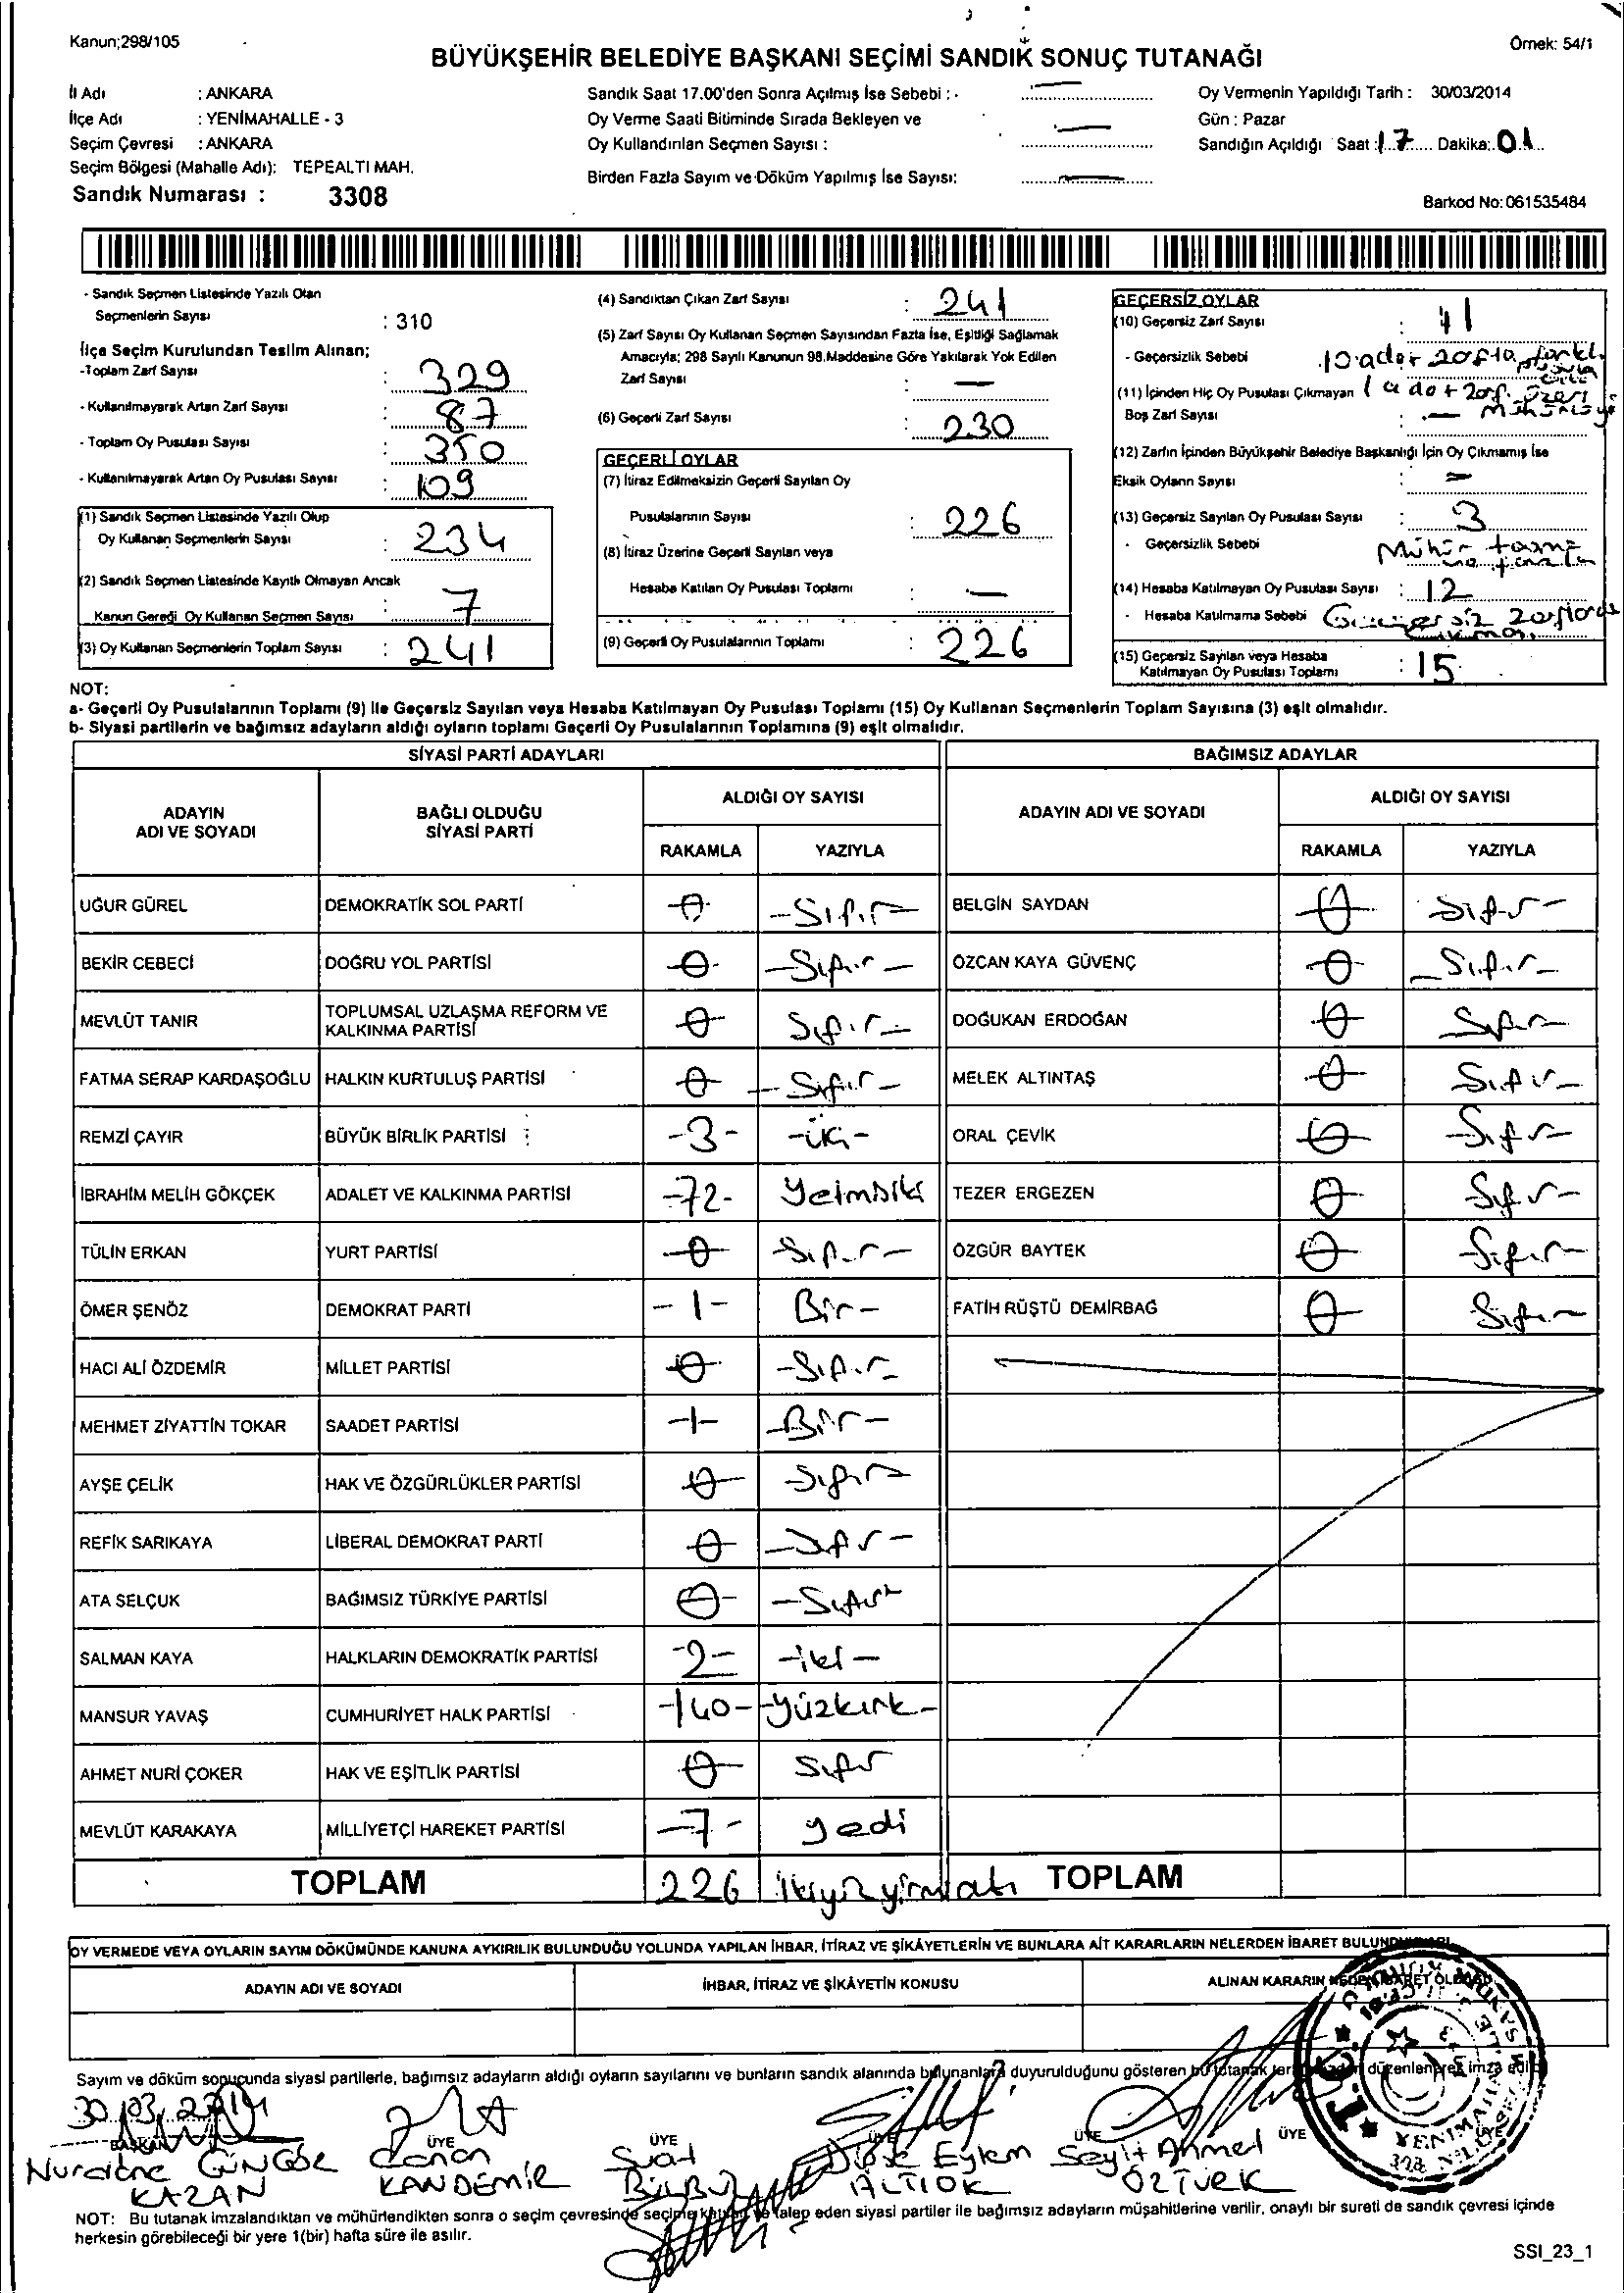 Kanun;298/105
Örnek: 54/1
BÜYÜKŞEHİR BELEDİYE BAŞKANI SEÇİMİ SANDIK SONUÇ TUTANAĞI
İl Adı : ANKARA
İlçe Adı : YENİMAHALLE - 3
Seçim Çevresi : ANKARA
Seçim Bölgesi (Mahalle Adı): TEPEALTI MAH.
Sandık Numarası : 3308
Sandık Saat 17.00'den Sonra Açılmış İse Sebebi : -
Oy Verme Saati Bitiminde Sırada Bekleyen ve
Oy Kullandırılan Seçmen Sayısı :
Birden Fazla Sayım ve Döküm Yapılmış İse Sayısı:
Oy Vermenin Yapıldığı Tarih : 30/03/2014
Gün : Pazar
Sandığın Açıldığı Saat : 17 Dakika: 01
Barkod No: 061535484
- Sandık Seçmen Listesinde Yazılı Olan
Seçmenlerin Sayısı : 310
İlçe Seçim Kurulundan Teslim Alınan;
-Toplam Zarf Sayısı : 329
- Kullanılmayarak Artan Zarf Sayısı : 87
- Toplam Oy Pusulası Sayısı : 350
- Kullanılmayarak Artan Oy Pusulası Sayısı : 109
(1) Sandık Seçmen Listesinde Yazılı Olup
Oy Kullanan Seçmenlerin Sayısı : 234
(2) Sandık Seçmen Listesinde Kayıtlı Olmayan Ancak
Kanun Gereği Oy Kullanan Seçmen Sayısı : 7
(3) Oy Kullanan Seçmenlerin Toplam Sayısı : 241
(4) Sandıktan Çıkan Zarf Sayısı : 241
(5) Zarf Sayısı Oy Kullanan Seçmen Sayısından Fazla İse, Eşitliği Sağlamak
Amacıyla; 298 Sayılı Kanunun 98.Maddesine Göre Yakılarak Yok Edilen
Zarf Sayısı : —
(6) Geçerli Zarf Sayısı : 230
GEÇERLİ OYLAR
(7) İtiraz Edilmeksizin Geçerli Sayılan Oy
Pusulalarının Sayısı : 226
(8) İtiraz Üzerine Geçerli Sayılan veya
Hesaba Katılan Oy Pusulası Toplamı : —
(9) Geçerli Oy Pusulalarının Toplamı : 226
GEÇERSİZ OYLAR
(10) Geçersiz Zarf Sayısı : 11
- Geçersizlik Sebebi
(11) İçinden Hiç Oy Pusulası Çıkmayan
Boş Zarf Sayısı : —
(12) Zarfın İçinden Büyükşehir Belediye Başkanlığı İçin Oy Çıkmamış İse
Eksik Oyların Sayısı : —
(13) Geçersiz Sayılan Oy Pusulası Sayısı : 3
- Geçersizlik Sebebi Mühür
(14) Hesaba Katılmayan Oy Pusulası Sayısı : 12
- Hesaba Katılmama Sebebi
(15) Geçersiz Sayılan veya Hesaba
Katılmayan Oy Pusulası Toplamı : 15
NOT:
a- Geçerli Oy Pusulalarının Toplamı (9) ile Geçersiz Sayılan veya Hesaba Katılmayan Oy Pusulası Toplamı (15) Oy Kullanan Seçmenlerin Toplam Sayısına (3) eşit olmalıdır.
b- Siyasi partilerin ve bağımsız adayların aldığı oyların toplamı Geçerli Oy Pusulalarının Toplamına (9) eşit olmalıdır.
SİYASİ PARTİ ADAYLARI BAĞIMSIZ ADAYLAR
ADAYIN ADI VE SOYADI BAĞLI OLDUĞU SİYASİ PARTİ ALDIĞI OY SAYISI ADAYIN ADI VE SOYADI ALDIĞI OY SAYISI
RAKAMLA YAZIYLA RAKAMLA YAZIYLA
UĞUR GÜREL DEMOKRATİK SOL PARTİ 0 -Sıfır- BELGİN SAYDAN 0 Sıfır-
BEKİR CEBECİ DOĞRU YOL PARTİSİ 0 -Sıfır- ÖZCAN KAYA GÜVENÇ 0 -Sıfır-
MEVLÜT TANIR TOPLUMSAL UZLAŞMA REFORM VE KALKINMA PARTİSİ 0 Sıfır- DOĞUKAN ERDOĞAN 0 Sıfır-
FATMA SERAP KARDAŞOĞLU HALKIN KURTULUŞ PARTİSİ 0 -Sıfır- MELEK ALTINTAŞ 0 Sıfır-
REMZİ ÇAYIR BÜYÜK BİRLİK PARTİSİ -3- -üç- ORAL ÇEVİK 0 -Sıfır-
İBRAHİM MELİH GÖKÇEK ADALET VE KALKINMA PARTİSİ -72- Yetmişiki TEZER ERGEZEN 0 Sıfır-
TÜLİN ERKAN YURT PARTİSİ 0 -Sıfır- ÖZGÜR BAYTEK 0 -Sıfır-
ÖMER ŞENÖZ DEMOKRAT PARTİ -1- Bir- FATİH RÜŞTÜ DEMİRBAĞ 0 Sıfır-
HACI ALİ ÖZDEMİR MİLLET PARTİSİ 0 -Sıfır-
MEHMET ZİYATTİN TOKAR SAADET PARTİSİ -1- -Bir-
AYŞE ÇELİK HAK VE ÖZGÜRLÜKLER PARTİSİ 0 -Sıfır-
REFİK SARIKAYA LİBERAL DEMOKRAT PARTİ 0 -Sıfır-
ATA SELÇUK BAĞIMSIZ TÜRKİYE PARTİSİ 0 -Sıfır-
SALMAN KAYA HALKLARIN DEMOKRATİK PARTİSİ -2- -iki-
MANSUR YAVAŞ CUMHURİYET HALK PARTİSİ -140- -yüzkırk-
AHMET NURİ ÇOKER HAK VE EŞİTLİK PARTİSİ 0 Sıfır
MEVLÜT KARAKAYA MİLLİYETÇİ HAREKET PARTİSİ -7- yedi
TOPLAM 226 ikiyüzyirmialtı TOPLAM
OY VERMEDE VEYA OYLARIN SAYIM DÖKÜMÜNDE KANUNA AYKIRILIK BULUNDUĞU YOLUNDA YAPILAN İHBAR, İTİRAZ VE ŞİKÂYETLERİN VE BUNLARA AİT KARARLARIN NELERDEN İBARET
ADAYIN ADI VE SOYADI İHBAR, İTİRAZ VE ŞİKÂYETİN KONUSU ALINAN KARARIN
Sayım ve döküm sonucunda siyasi partilerle, bağımsız adayların aldığı oyların sayılarını ve bunların sandık alanında bulunanlara duyurulduğunu gösteren bu tutanak
30.03.2014
BAŞKAN ÜYE ÜYE ÜYE ÜYE ÜYE ÜYE
GÜNGÖR KAZAN
Canan KANDEMİR
Suat
Eylem ALTIOK
Seyit Ahmet ÖZTÜRK
T.C.
NOT: Bu tutanak imzalandıktan ve mühürlendikten sonra o seçim çevresinde seçime katılan ve talep eden siyasi partiler ile bağımsız adayların müşahitlerine verilir, onaylı bir sureti de sandık çevresi içinde
herkesin görebileceği bir yere 1(bir) hafta süre ile asılır.
SSI_23_1